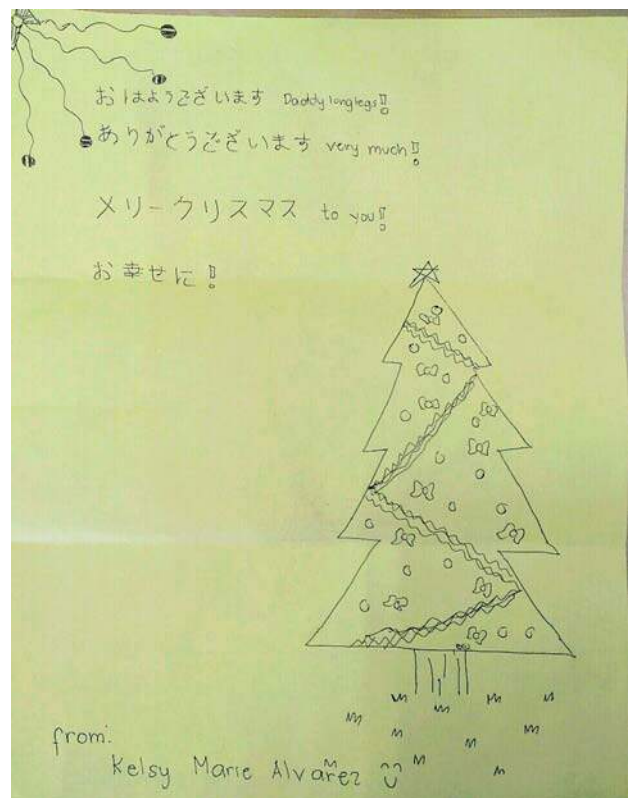 おはようございます Daddy longlegs!!
ありがとうございます very much!!
メリークリスマス to you!!
お幸せに!
from:
Kelsy Marie Alvarez